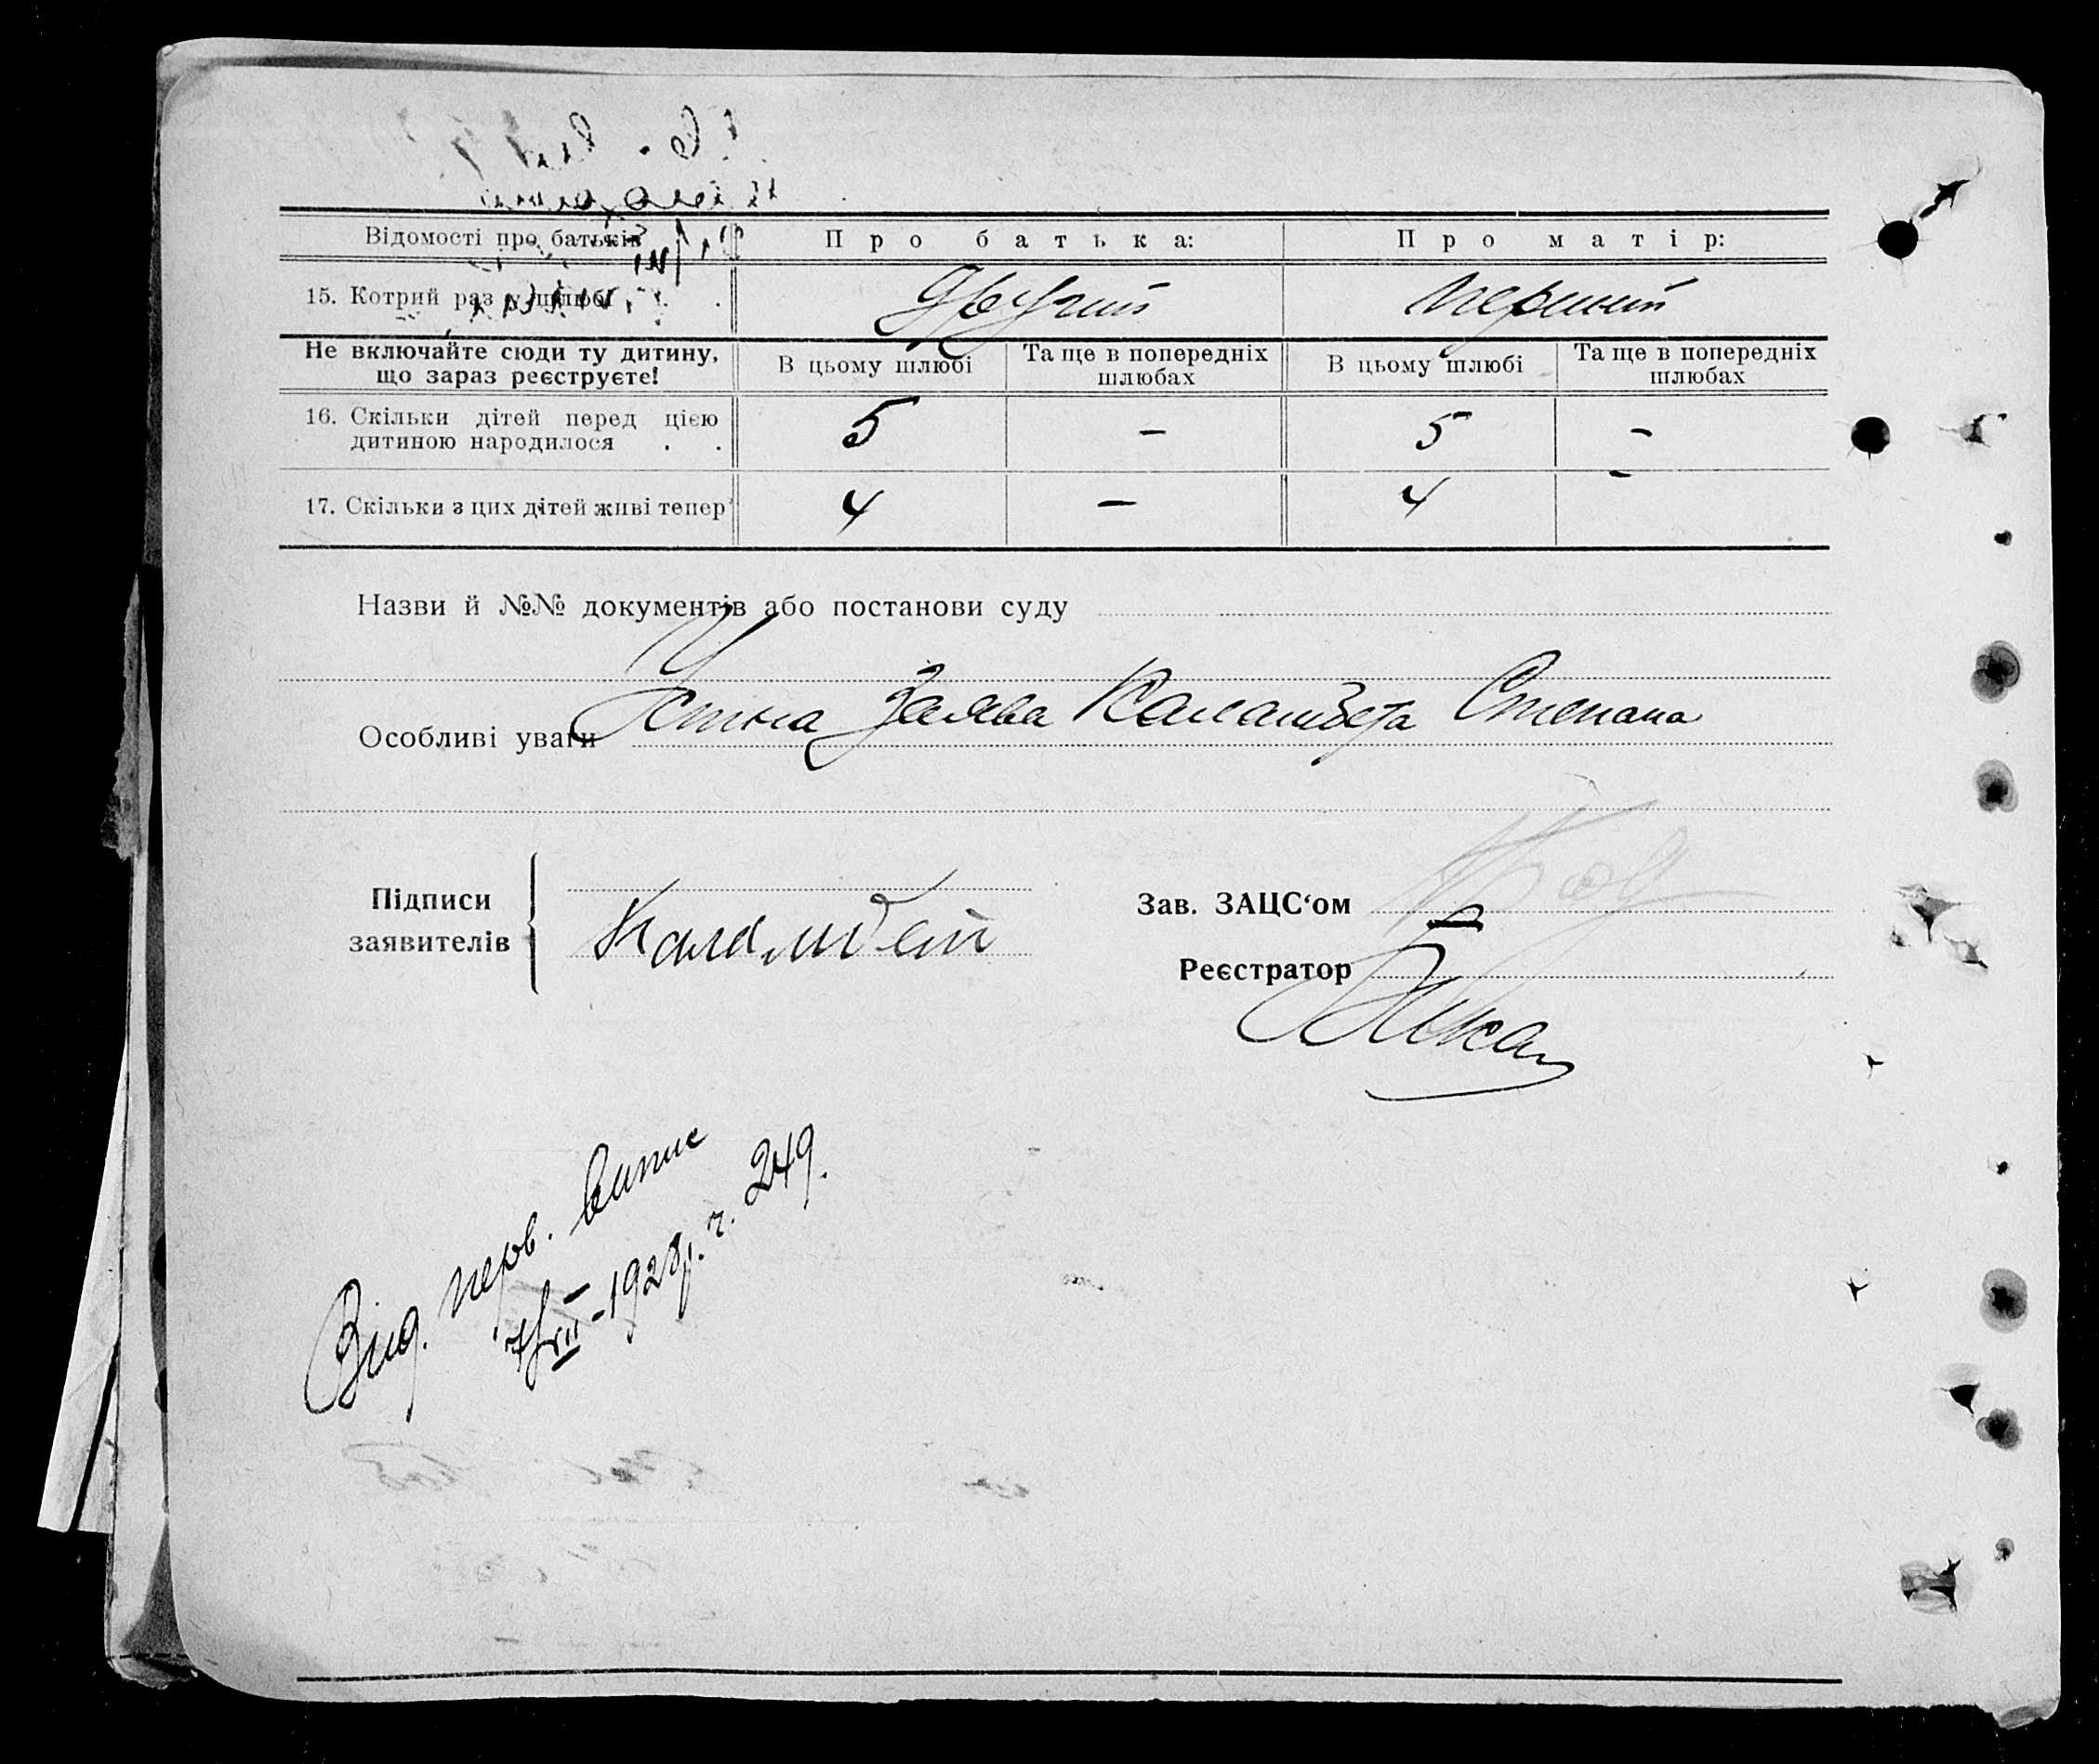 Відомості про батьків Про батька: Про матір:
15. Котрий раз у шлюбі . . Другий перший
Не включайте сюди ту дитину, що зараз реєструєте! В цьому шлюбі Та ще в попередніх шлюбах В цьому шлюбі Та ще в попередніх шлюбах
16. Скільки дітей перед цією дитиною народилося . . 5 – 5 –
17. Скільки з цих дітей живі тепер 4 – 4 –
Назви й №№ документів або постанови суду
Устна заява Каламбета Степана
Особливі уваги
Підписи заявителів Каламбет
Зав. ЗАЦС‘ом
Реєстратор
Вид. перв. випис
7/VII–1928р. ч. 249.